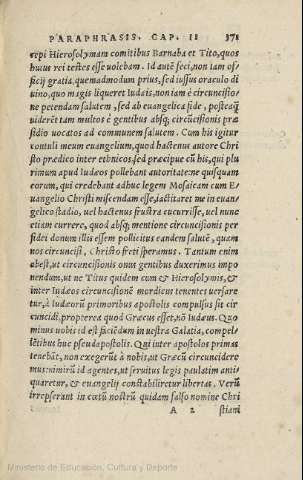 PARAPHRASIS. CAP. II 371
cepi Hierosolymam comitibus Barnaba et Tito, quos
huius rei testes esse uolebam. Id autẽ feci, non tam of⸗
ficij gratia, quemadmodum prius, sed iussus oraculo di
uino, quo magis liqueret Iudæis, non iam è circuncisio⸗
ne petendam salutem, sed ab euangelica fide, posteaq̃
uiderẽt tam multos è gentibus absq; circũcisionis præ
sidio uocatos ad communem salutem. Cum his igitur
contuli meum euangelium, quod hactenus autore Chri
sto prædico inter ethnicos, sed præcipue cũ his, qui plu
rimum apud Iudæos pollebant autoritate: ne quisquam
eorum, qui credebant adhuc legem Mosaicam cum E⸗
uangelio Christi miscendam esse, iactitaret me in euan⸗
gelico stadio, uel hactenus frustra cucurrisse, uel nunc
etiam currere, quod absq; mentione circuncisionis per
fidei donum illis essem pollicitus eandem salutẽ, quam
nos circuncisi, Christo freti speramus. Tantum enim
abest, ut circuncisionis onus gentibus duxerimus impo
nendum, ut ne Titus quidem cum & Hierosolymis, &
inter Iudæos circuncisionẽ mordicus tenentes uersare
tur, à Iudæorũ primoribus apostolis compulsus sit cir
cuncidi, propterea quod Græcus esset, nõ Iudæus. Quo
minus uobis id est faciẽdum in uestra Galatia, compel⸗
lẽtibus huc pseudapostolis. Qui inter apostolos primas
tenebãt, non exegerũt à nobis, ut Græcũ circuncidere
mus: nimirũ id agentes, ut seruitus legis paulatim anti⸗
quaretur, & euangelij constabiliretur libertas. Verũ
irrepserant in cœtũ nostrũ quidam falso nomine Chri
A 2 stiani
Ministerio de Educación, Cultura y Deporte